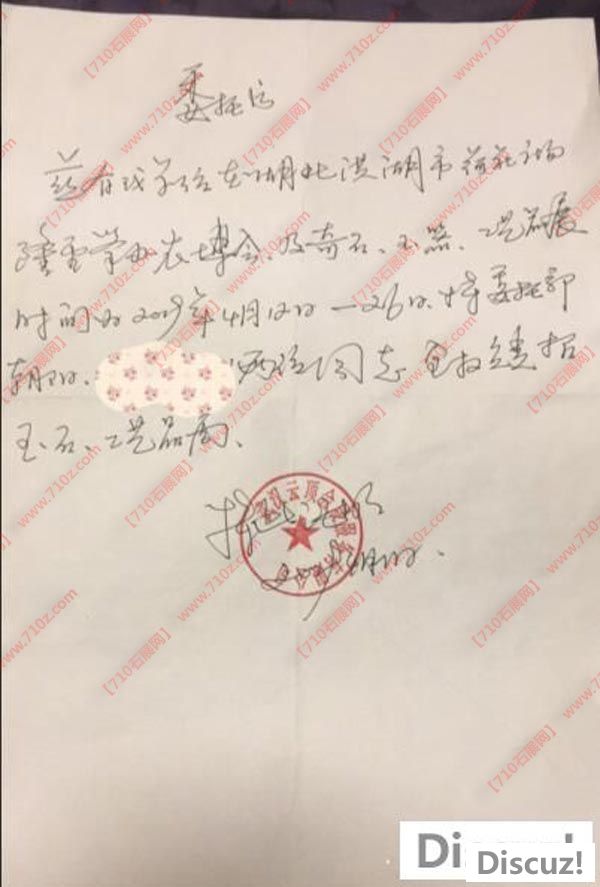 委托信
兹有我单位在湖北洪湖市荷花广场
隆重举办农博会及奇石、玉器、工艺品展
时间为2019年4月12日—26日.特委托郭
朝日、两位同志全权负责招
玉石、工艺品商、
【710石展网】 www.710z.com
Discuz!